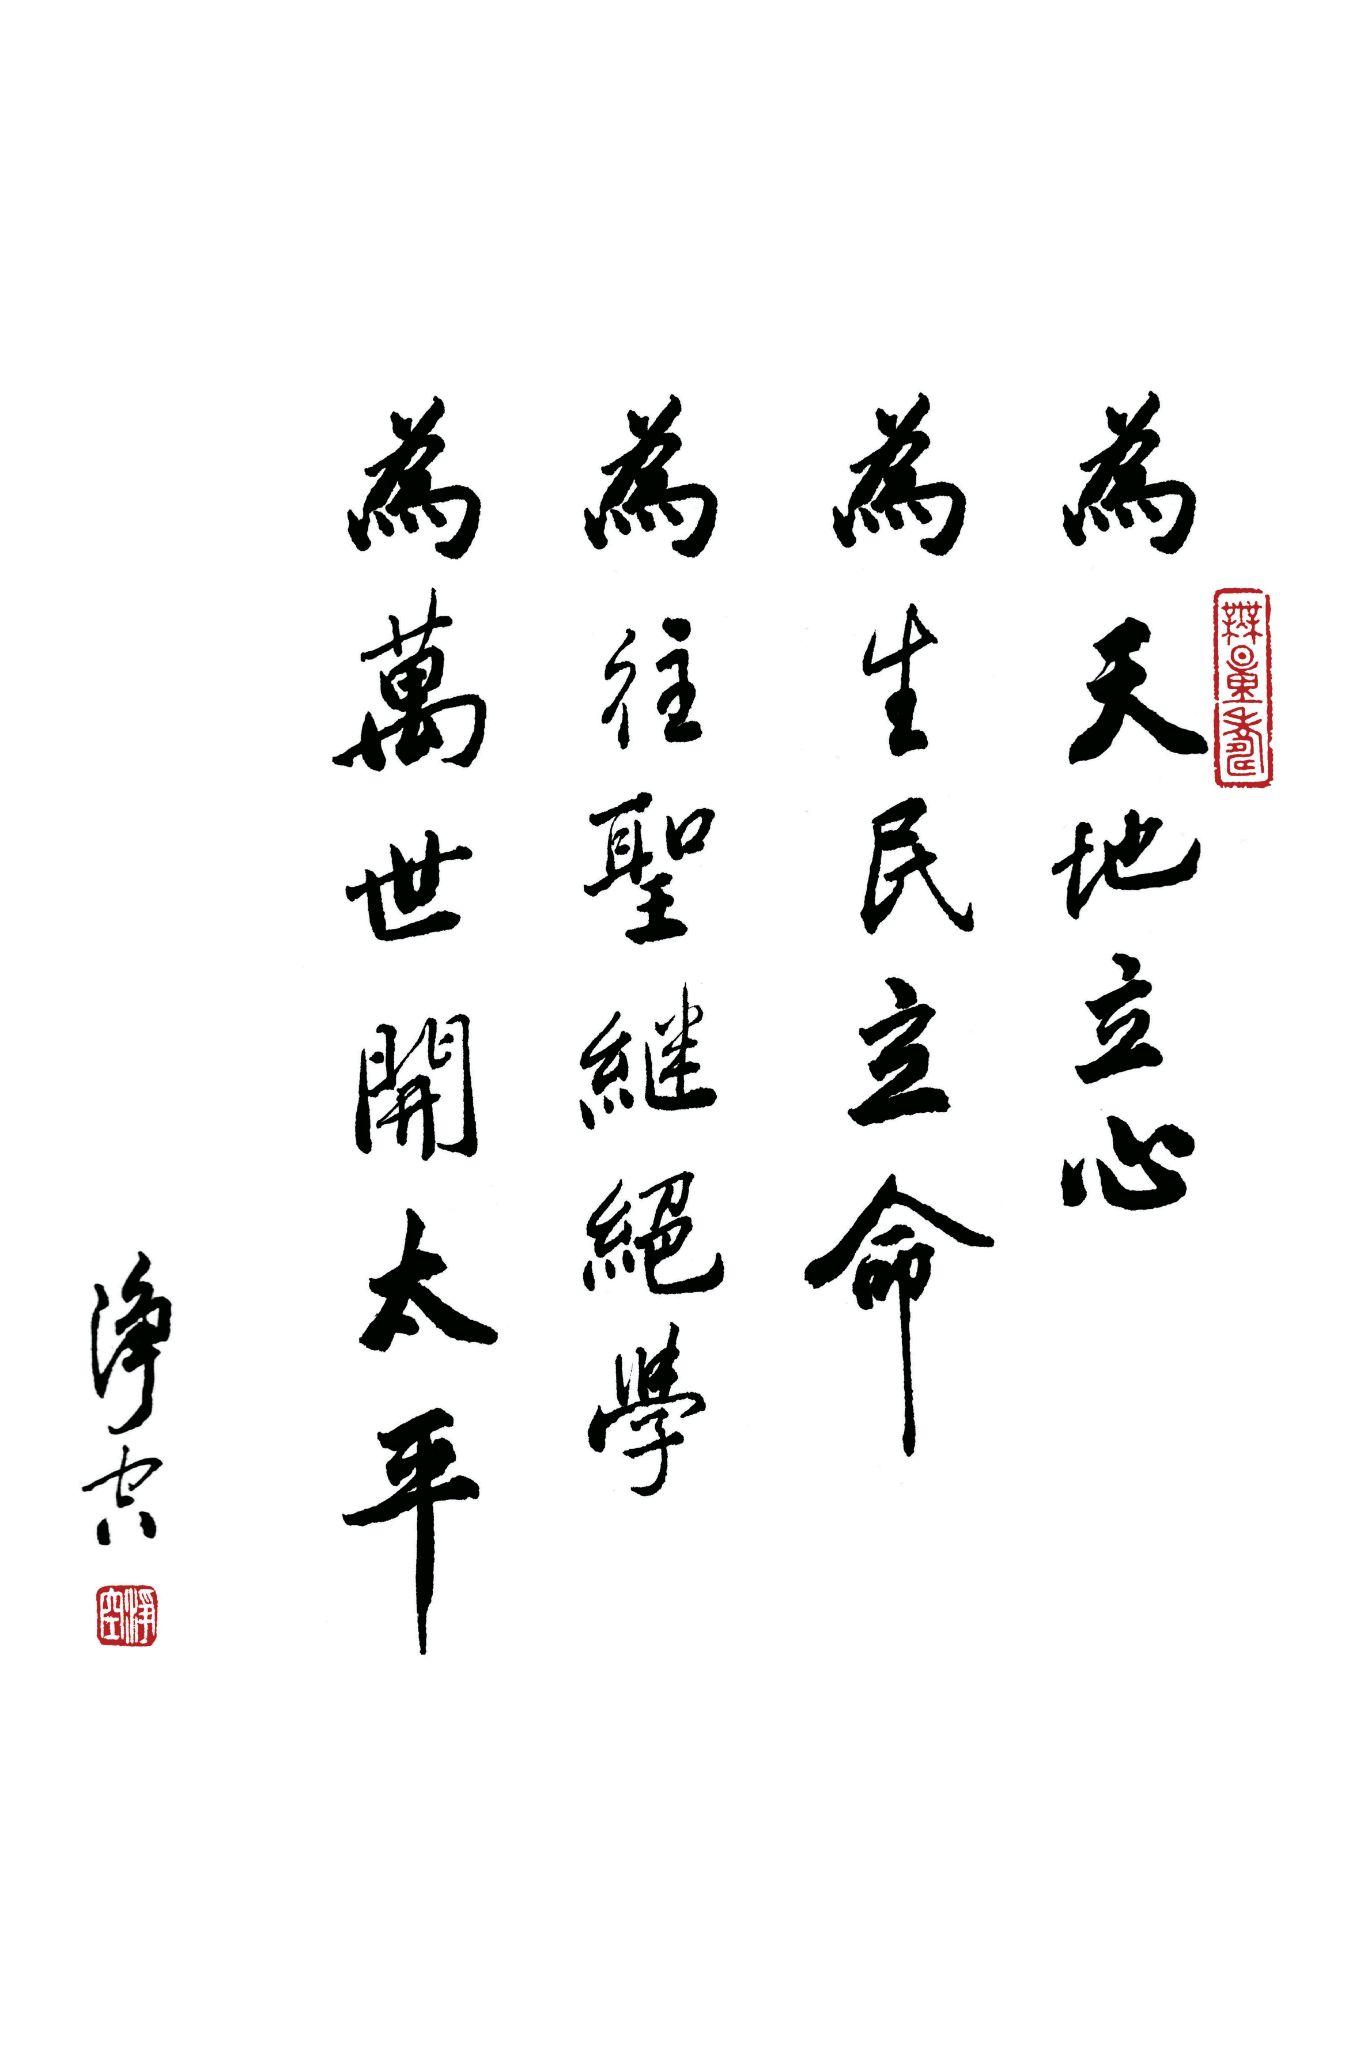 為天地立心
為生民立命
為往聖継絕學
為萬世開太平
淨空
無量壽
淨空